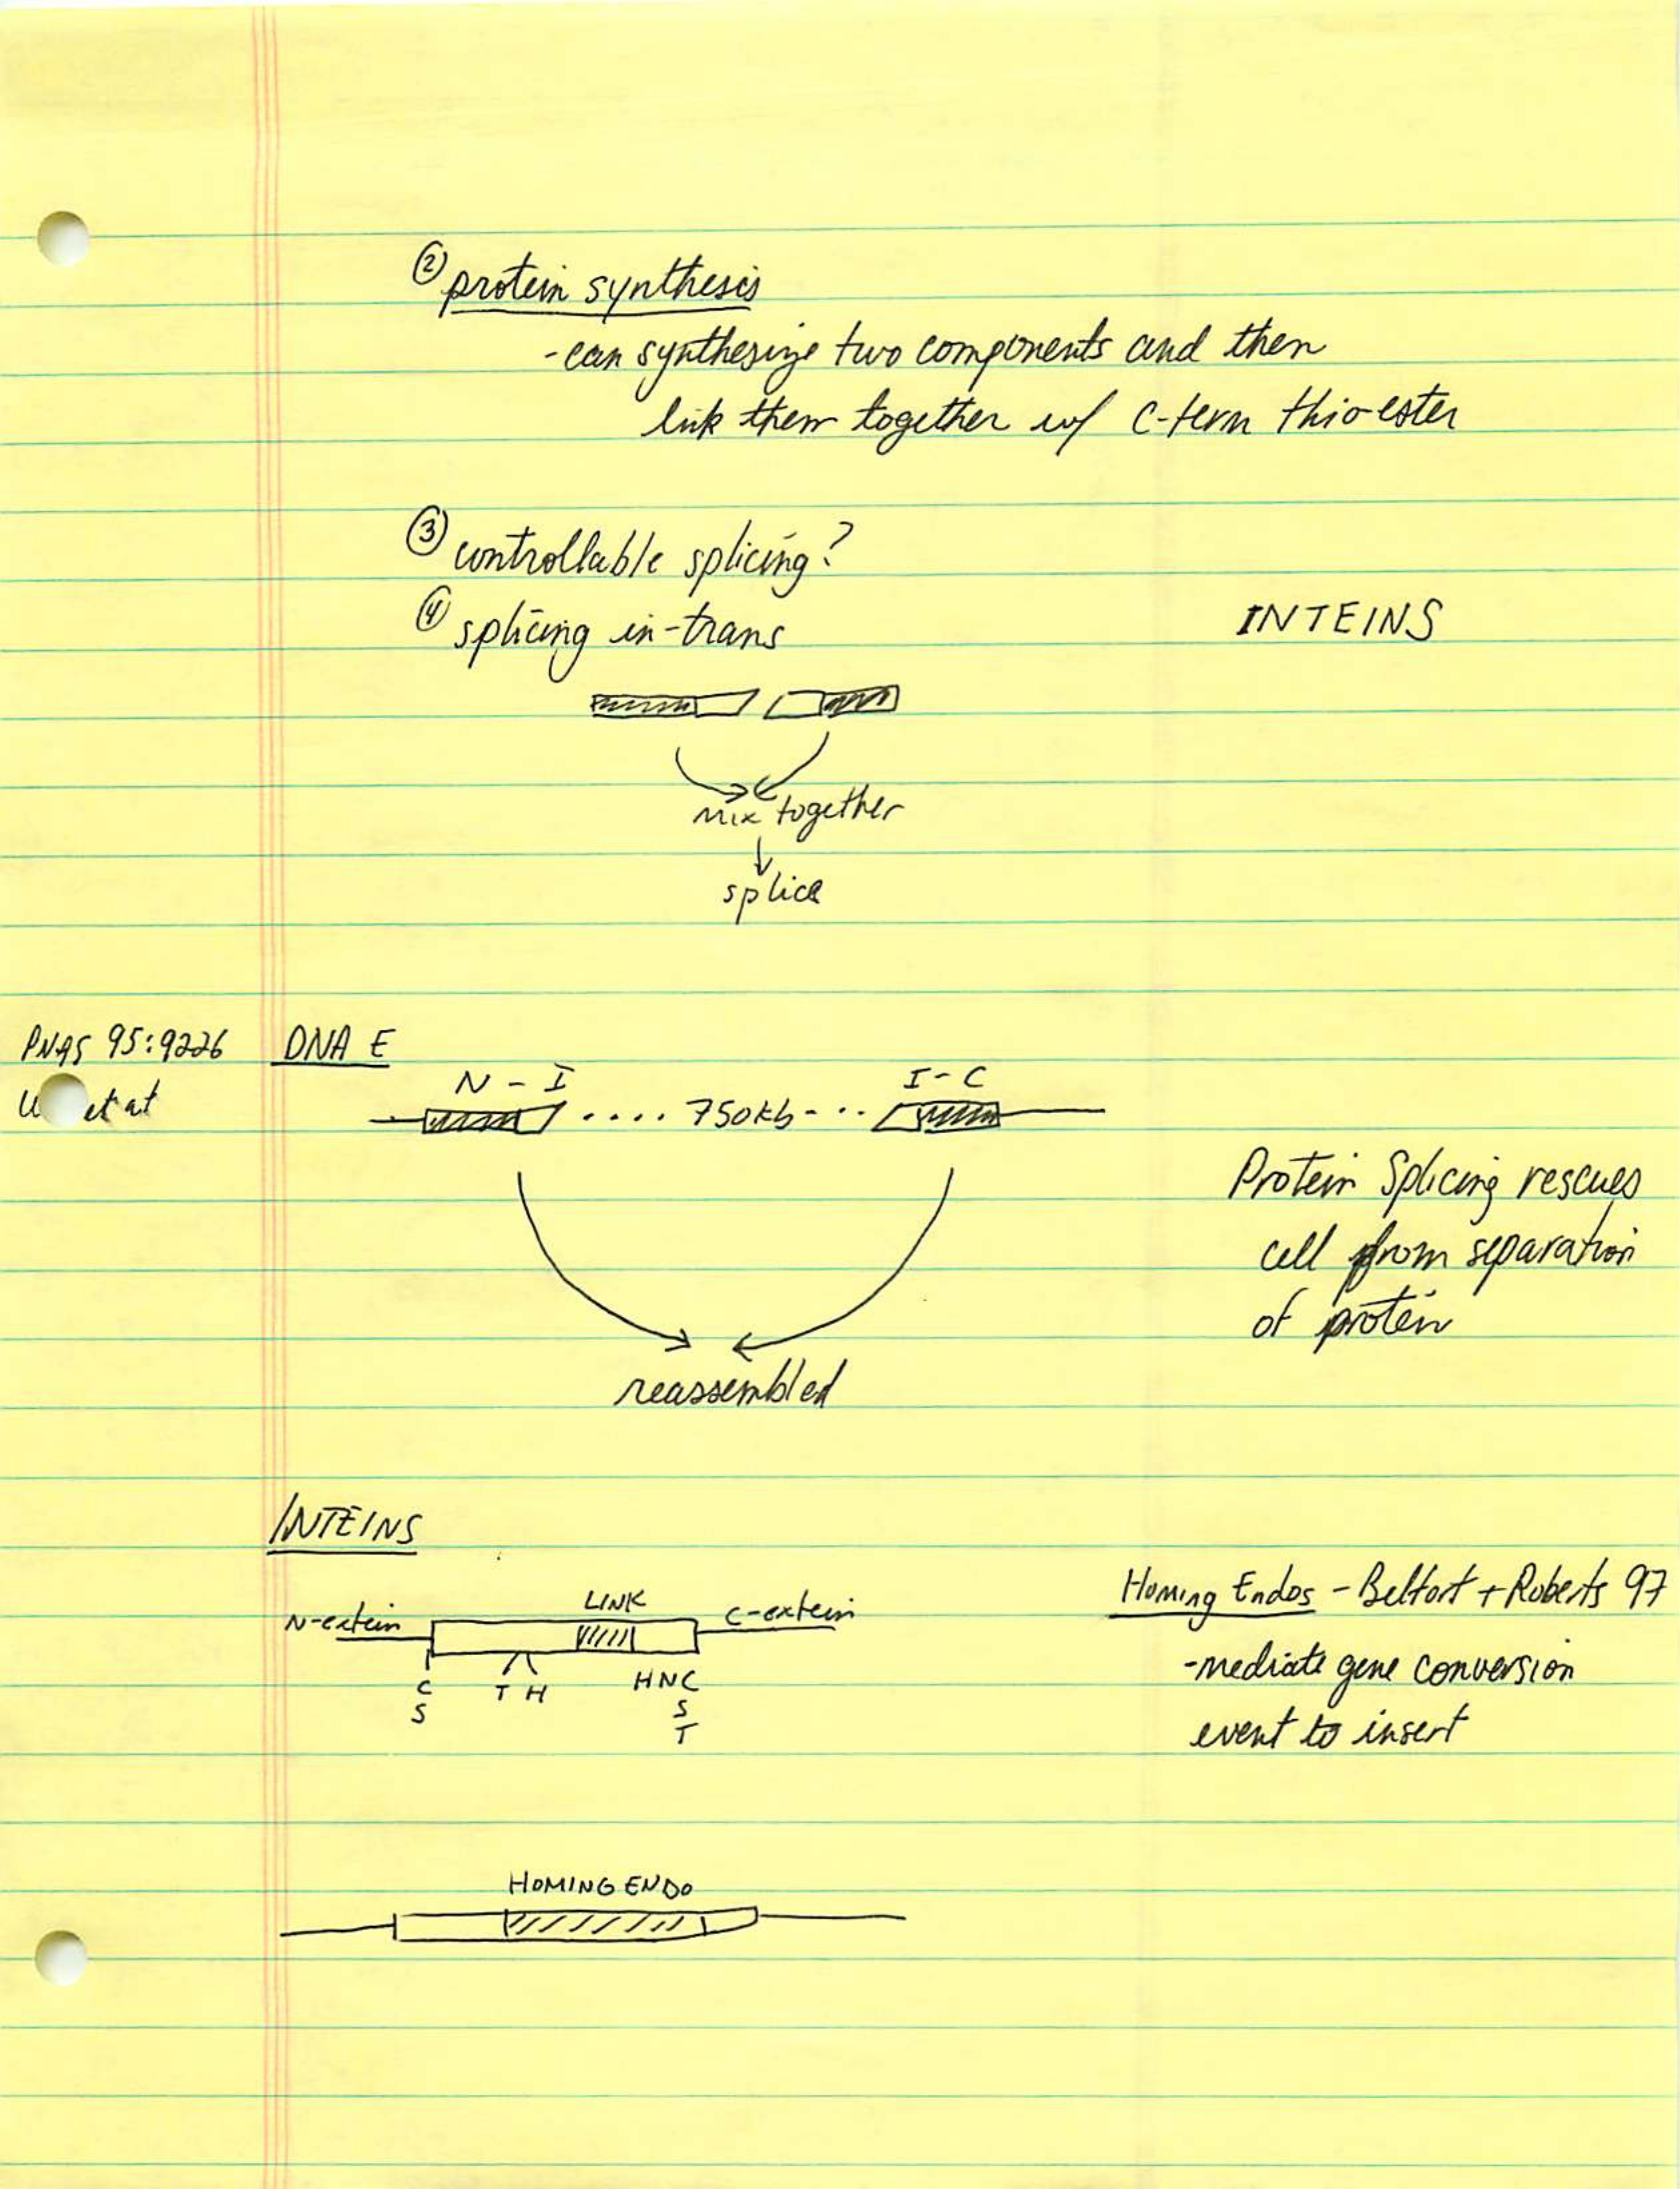 ② protein synthesis
- can synthesize two components and then
link them together w/ C-term thio-ester
③ controllable splicing?
④ splicing in-trans
INTEINS
mix together
↓
splice
PNAS 95:9226
et al
DNA E
N - I
I - C
.... 750kb - ..
Protein Splicing rescues
cell from separation
of protein
reassembled
INTEINS
LINK
N-extein
C-extein
C
S
T H
HNC
S
T
Homing Endos - Belfort + Roberts 97
- mediate gene conversion
event to insert
HOMING ENDO